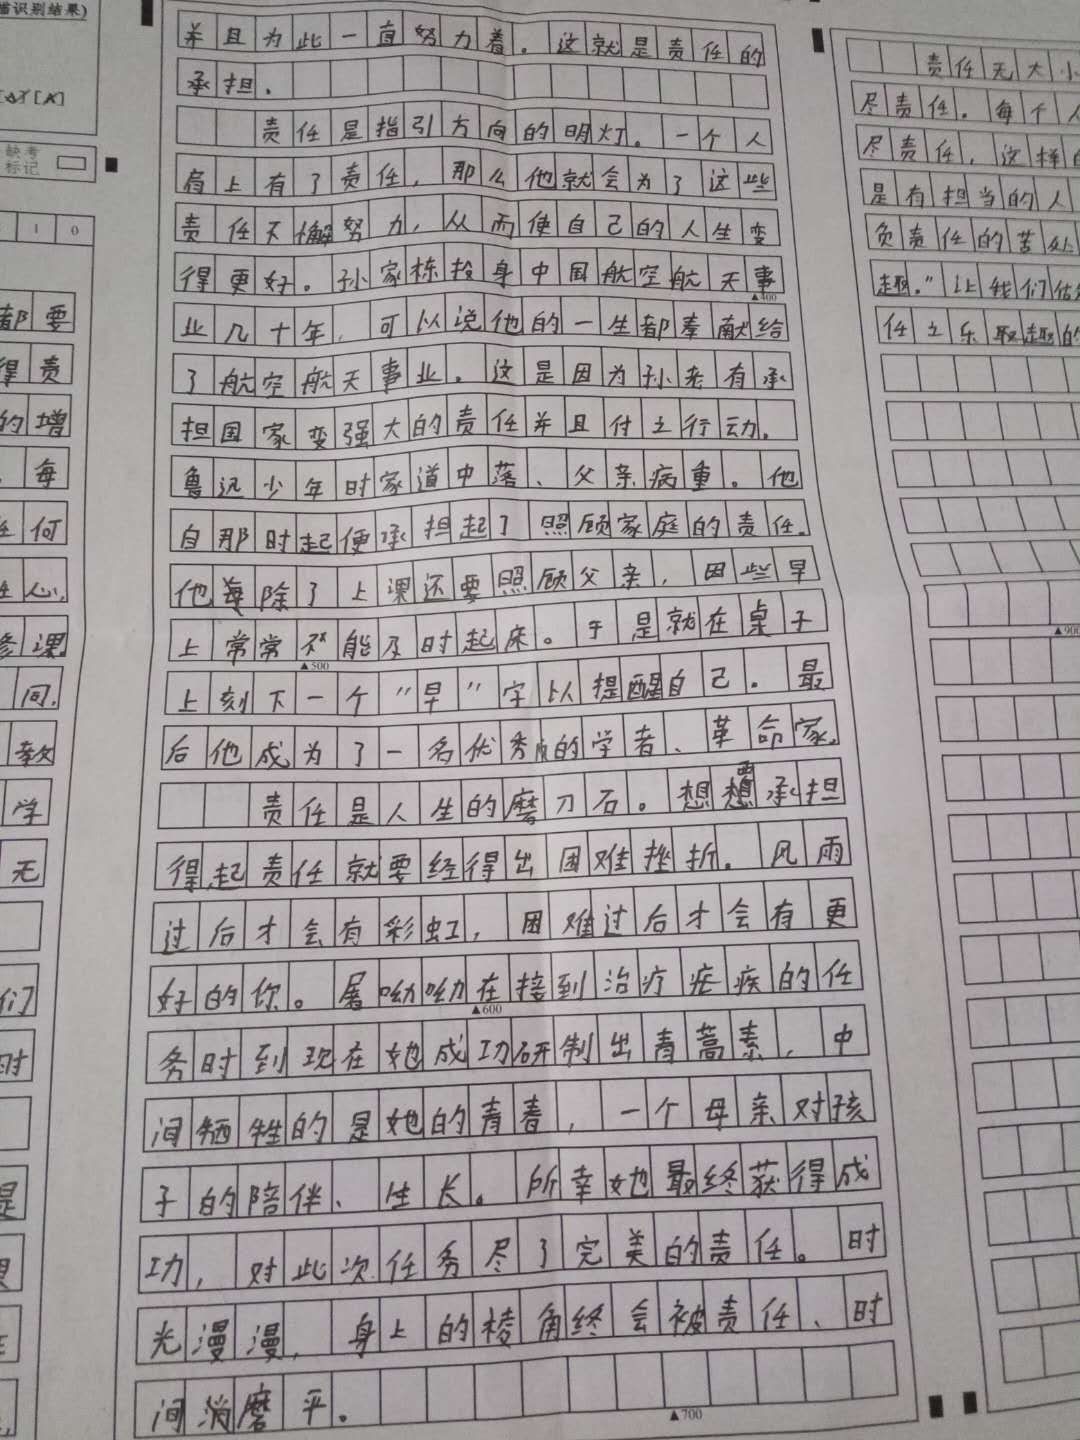 描识别结果)
缺考
标记
1 0
都要
得责
的增
每
任何
任心,
修课
同,
教
学
无
们
时
是
并且为此一直努力着。这就是责任的
承担.
责任是指引方向的明灯。一个人
肩上有了责任,那么他就会为了这些
责任不懈努力,从而使自己的人生变
得更好。孙家栋投身中国航空航天事
▲400
业几十年,可以说他的一生都奉献给
了航空航天事业。这是因为孙老有承
担国家变强大的责任并且付之行动.
鲁迅少年时家道中落、父亲病重。他
自那时起便承担起了照顾家庭的责任.
他每除了上课还要照顾父亲,因些早
上常常不能及时起床。于是就在桌子
▲500
上刻下一个"早"字以提醒自己.最
后他成为了一名优秀的学者、革命家.
责任是人生的磨刀石。想要承担
得起责任就要经得出困难挫折.风雨
过后才会有彩虹,困难过后才会有更
好的你。屠呦呦在接到治疗疟疾的任
▲600
务时到现在她成功研制出青蒿素,中
间牺牲的是她的青春,一个母亲对孩
子的陪伴、生长。所幸她最终获得成
功,对此次任务尽了完美的责任。时
光漫漫,身上的棱角终会被责任、时
间消磨平。
▲700
责任无大小
尽责任.每个人
尽责任,这样的
是有担当的人
负责任的苦处
趣."让我们
任之乐趣的
▲900